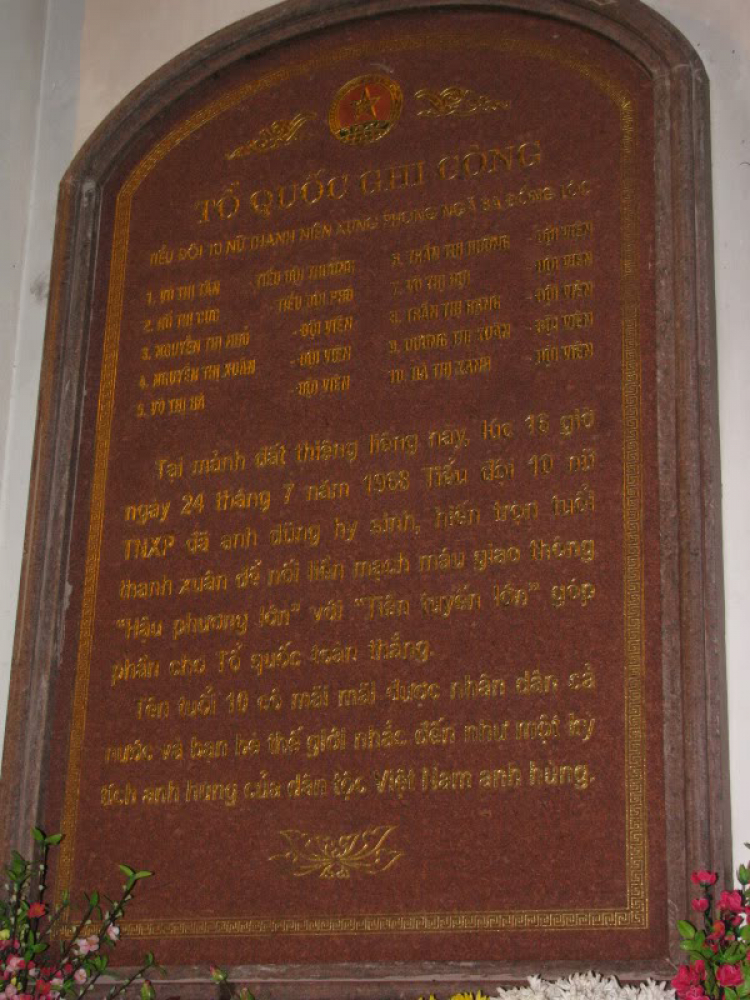 TỔ QUỐC GHI CÔNG
TIỂU ĐỘI 10 NỮ THANH NIÊN XUNG PHONG NGÃ BA ĐỒNG LỘC
1. VÕ THỊ TẦN - TIỂU ĐỘI TRƯỞNG
2. HỒ THỊ CÚC - TIỂU ĐỘI PHÓ
3. NGUYỄN THỊ NHỎ - ĐỘI VIÊN
4. NGUYỄN THỊ XUÂN - ĐỘI VIÊN
5. VÕ THỊ HÀ - ĐỘI VIÊN
6. TRẦN THỊ HƯỜNG - ĐỘI VIÊN
7. VÕ THỊ HỢI - ĐỘI VIÊN
8. TRẦN THỊ RẠNG - ĐỘI VIÊN
9. DƯƠNG THỊ XUÂN - ĐỘI VIÊN
10. HÀ THỊ XANH - ĐỘI VIÊN
Tại mảnh đất thiêng liêng này, lúc 16 giờ
ngày 24 tháng 7 năm 1968 Tiểu đội 10 nữ
TNXP đã anh dũng hy sinh, hiến trọn tuổi
thanh xuân để nối liền mạch máu giao thông
"Hậu phương lớn" với "Tiền tuyến lớn" góp
phần cho Tổ quốc toàn thắng.
Tên tuổi 10 cô mãi mãi được nhân dân cả
nước và bạn bè thế giới nhắc đến như một kỳ
tích anh hùng của dân tộc Việt Nam anh hùng.